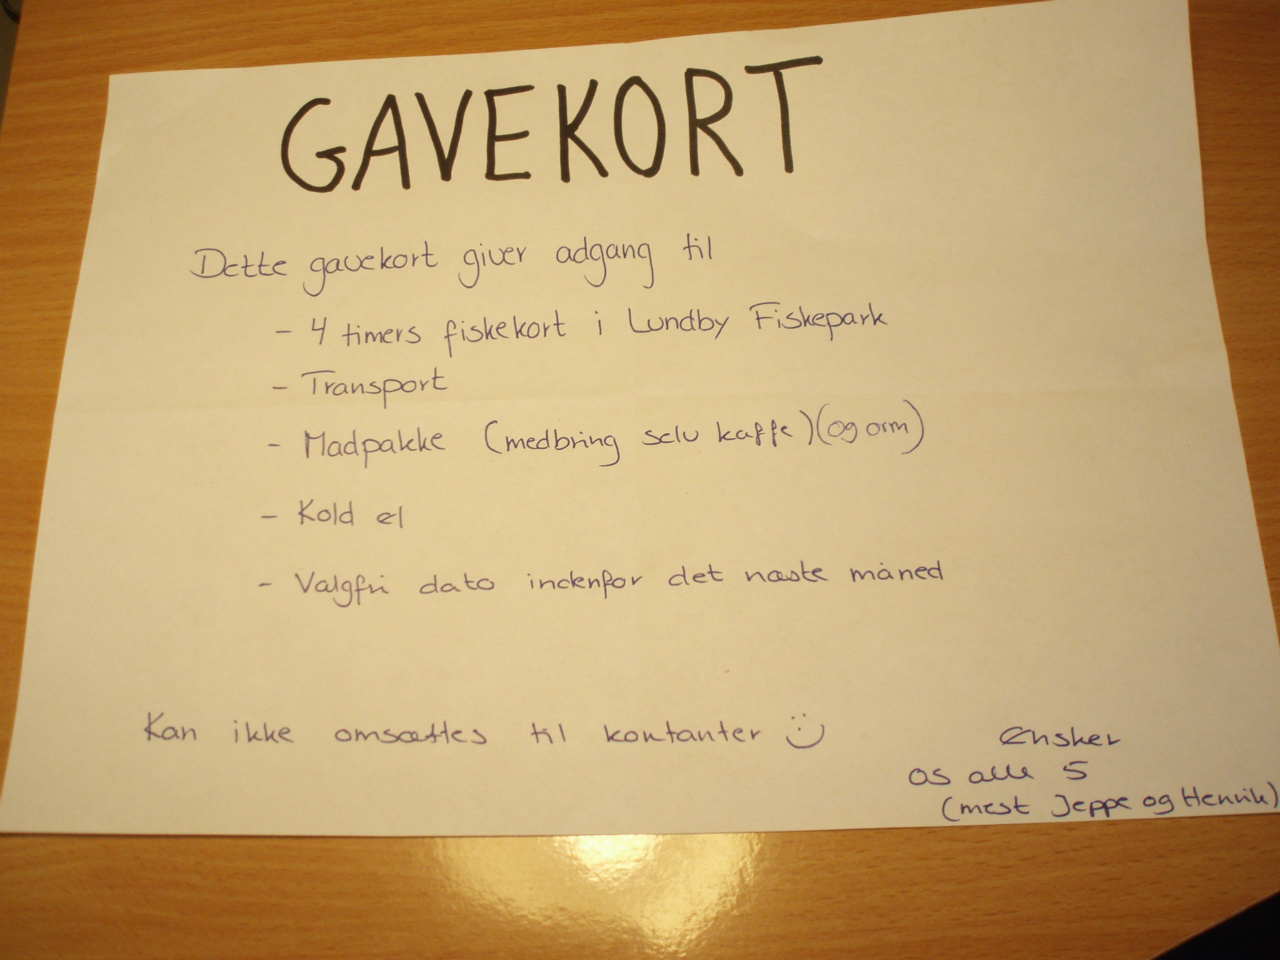 GAVEKORT
Dette gavekort giver adgang til
- 4 timers fiskekort i Lundby Fiskepark
- Transport
- Madpakke (medbring selv kaffe) (og orm)
- Kold øl
- Valgfri dato indenfor det næste måned
Kan ikke omsættes til kontanter :)
Ønsker
os alle 5
(mest Jeppe og Henrik)